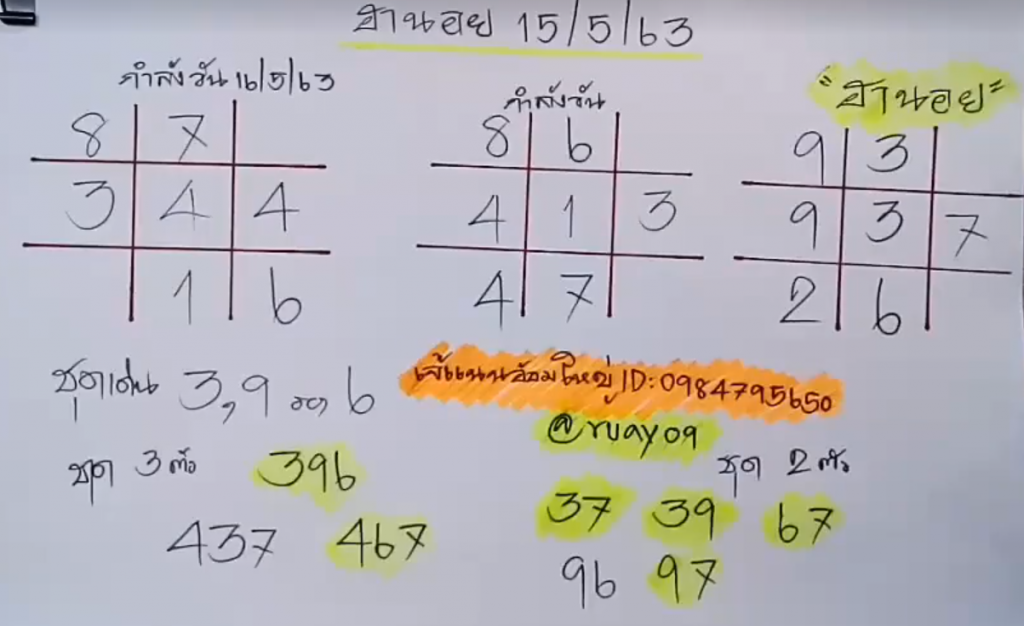 ฮานอย 15/5/63
กำลังวัน 16/5/63
8 7
3 4 4
1 6
กำลังวัน
8 6
4 1 3
4 7
"ฮานอย"
9 3
9 3 7
2 6
ชุดเด่น 3,9 รอง 6
ID: 0984795650
@ruay09
ชุด 3 ตัว 396
437 467
ชุด 2 ตัว
37 39 67
96 97